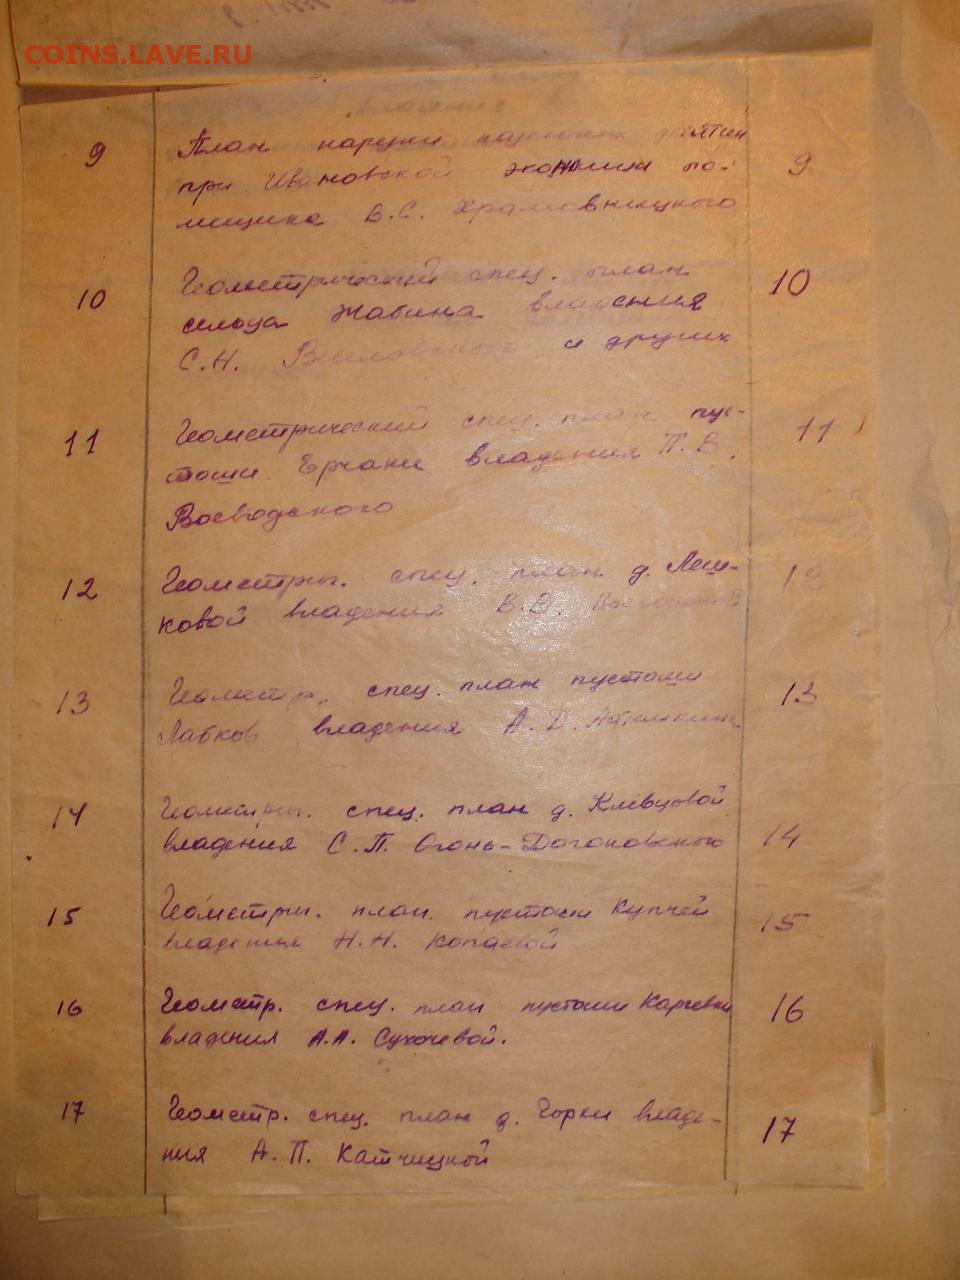 COINS.LAVE.RU
владения
9 План нарезки казенных десятин 9
при Ивановской экономии по-
мещика В.С. Храмовницкого
10 Геометрический спец. план 10
сельца Жабина владения
С.Н. Веселовского и других
11 Геометрический спец. план пус- 11
тоши Ерчани владения П.В.
Воеводского
12 Геометрич. спец. план д. Леш- 12
ковой владения В.В. Воеводской
13 Геометр. спец. план пустоши 13
Лабков владения А.Д.
14 Геометрич. спец. план д. Клевцовой 14
владения С.П. Огонь-Догоновского
15 Геометрич. план. пустоши Купчей 15
владения Н.Н. Копаевой
16 Геометр. спец. план пустоши 16
владения А.А. Сухочевой.
17 Геометр. спец. план д. Горки владе- 17
ния А.П. Катчицкой